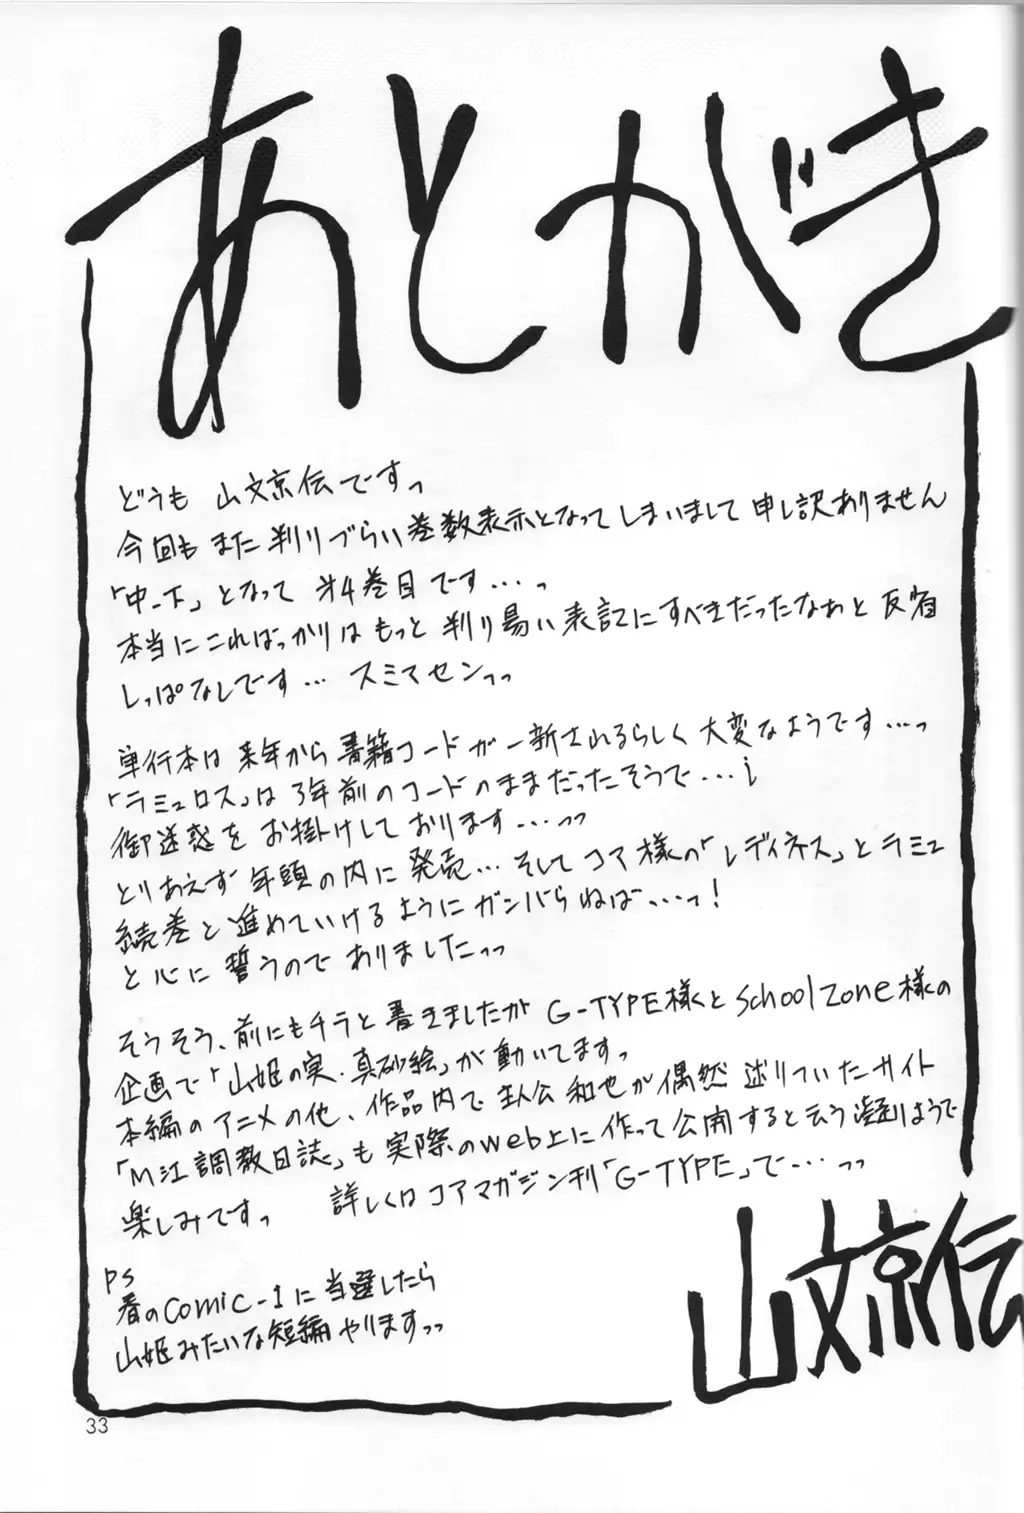 あとがき
どうも 山文京伝ですっ
今回も また 判りづらい巻数表示となってしまいまして 申し訳ありません
「中-下」となって 第4巻目です…っ
本当にこればっかりは もっと 判り易い表記にすべきだったなぁと 反省
しっぱなしです… スミマセンっっ
単行本は 来年から 書籍コードが一新されるらしく 大変なようです…っ
「ラミュロス」は 3年前のコードのままだったそうで…
御迷惑を お掛けしております…っっ
とりあえず 年頭の内に 発売… そして コア様の「レディネス」とラミュ
続巻と進めていけるように ガンバらねば…っ!
と心に 誓うので ありましたっっ
そうそう、前にもチラと 書きましたが G-TYPE様とschoolzone様の
企画で「山姫の実・真砂絵」が 動いてますっ
本編の アニメの他、作品内で 主人公 和也が 偶然 辿りついたサイト
「M江調教日誌」も 実際のweb上に 作って 公開すると云う凝りようで
楽しみですっ 詳しくは コアマガジン刊「G-TYPE」で…っっ
PS
春のcomic-1に 当選したら
山姫みたいな短編 やりますっっ
山文京伝
33